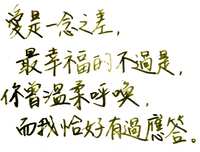 愛是一念之差,
最幸福的不過是,
你曾溫柔呼喚,
而我恰好有過應答。